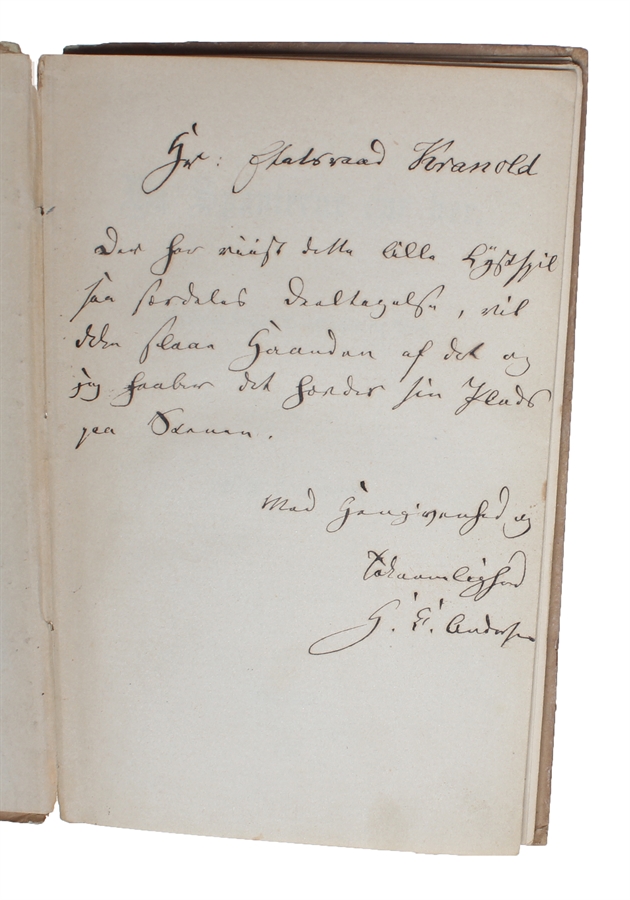 Hr: Etatsraad Kranold
Der har viist dette lille Lystspil
saa særdeles Deeltagelse, vil
ikke slaae Haanden af det og
jeg haaber det hævder sin Plads
paa Scenen.
Med Hengivenhed og
Taknemlighed
H. C. Andersen